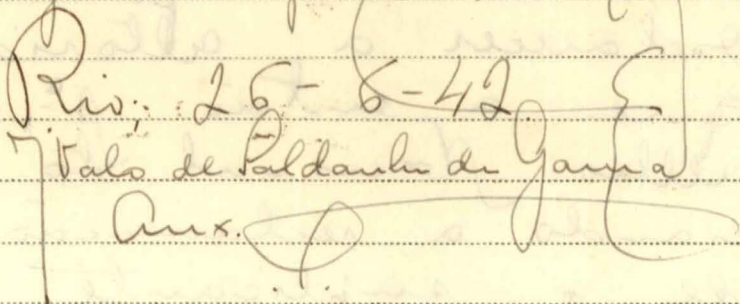 Rio, 26-6-42
Italo de Saldanha da Gama
Aux.